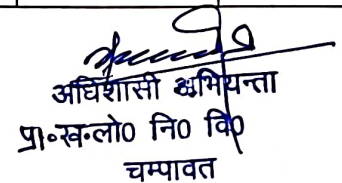 अधिशासी अभियन्ता
प्रा०ख०लो0 नि0 वि0
चम्पावत